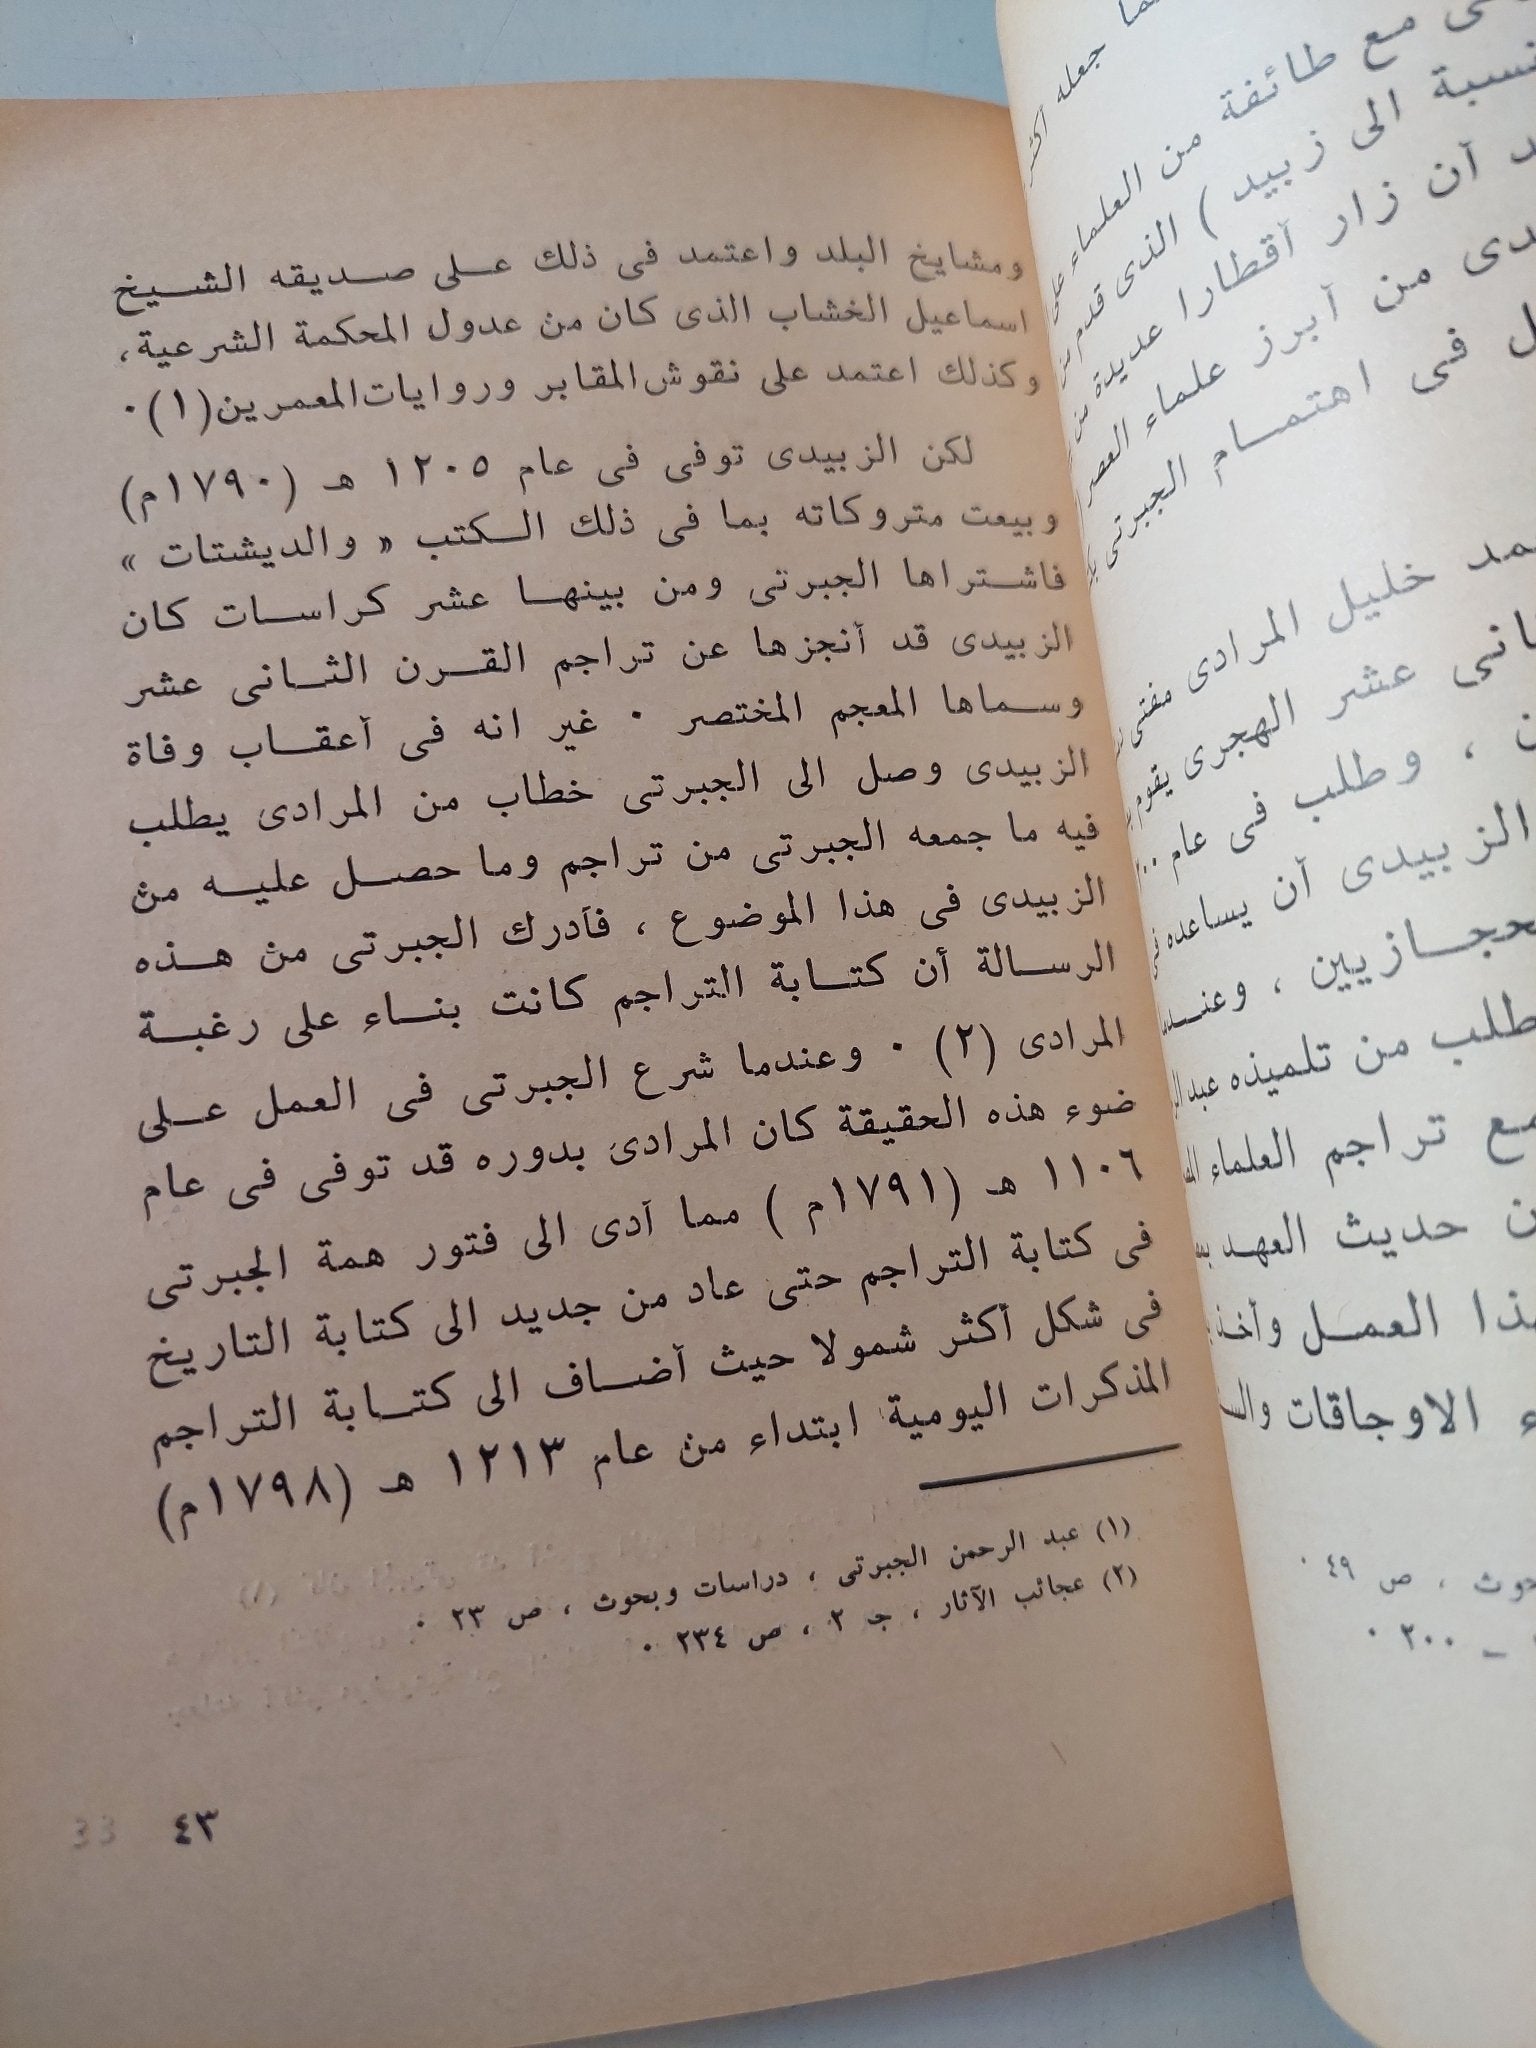 ومشايخ البلد واعتمد فى ذلك على صديقه الشيخ
اسماعيل الخشاب الذى كان من عدول المحكمة الشرعية،
وكذلك اعتمد على نقوش المقابر وروايات المعمرين (١) ٠
لكن الزبيدى توفى فى عام ١٢٠٥ هـ (١٧٩٠م)
وبيعت متروكاته بما فى ذلك الكتب « والديشتات »
فاشتراها الجبرتى ومن بينها عشر كراسات كان
الزبيدى قد أنجزها عن تراجم القرن الثانى عشر
وسماها المعجم المختصر ٠ غير انه فى أعقاب وفاة
الزبيدى وصل الى الجبرتى خطاب من المرادى يطلب
فيه ما جمعه الجبرتى من تراجم وما حصل عليه من
الزبيدى فى هذا الموضوع ، فأدرك الجبرتى من هذه
الرسالة أن كتابة التراجم كانت بناء على رغبة
المرادى (٢) ٠ وعندما شرع الجبرتى فى العمل على
ضوء هذه الحقيقة كان المرادى بدوره قد توفى فى عام
١١٠٦ هـ (١٧٩١م ) مما أدى الى فتور همة الجبرتى
فى كتابة التراجم حتى عاد من جديد الى كتابة التاريخ
فى شكل أكثر شمولا حيث أضاف الى كتابة التراجم
المذكرات اليومية ابتداء من عام ١٢١٣ هـ (١٧٩٨م)
(١) عبد الرحمن الجبرتى ، دراسات وبحوث ، ص ٢٣ ٠
(٢) عجائب الآثار ، جـ ٢ ، ص ٢٣٤ ٠
٤٣
جعله أكثر
مع طائفة من العلماء على
الى زبيد ) الذى قدم من
أن زار أقطارا عديدة من
من أبرز علماء العصر
فى اهتمام الجبرتى
خليل المرادى مفتى
عشر الهجرى يقوم
، وطلب فى عام
الزبيدى أن يساعده فى
، وعندما
من تلميذه عبد
تراجم العلماء
حديث العهد
العمل وأخذ
الاوجاقات
، ص ٤٩ ٠
ـ ٢٠٠ ٠